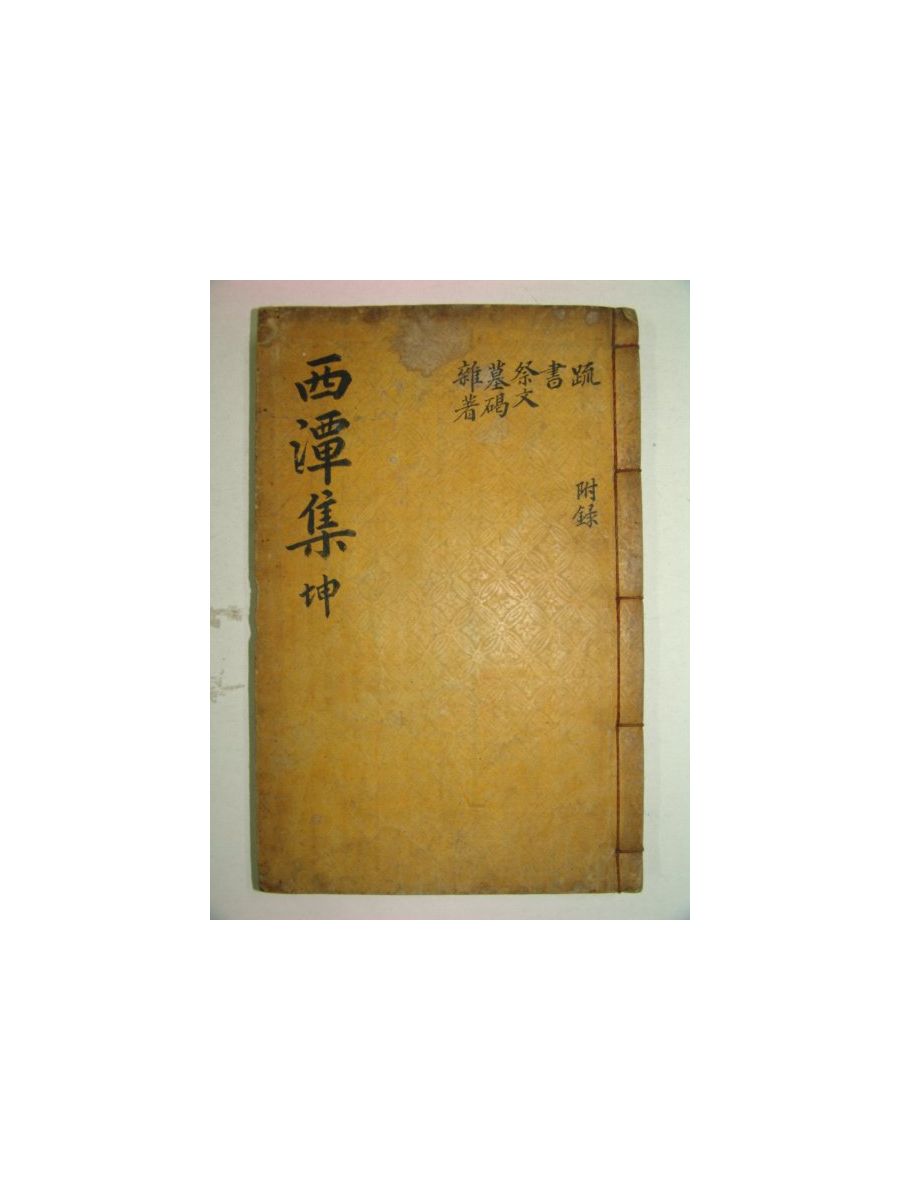 西潭集 坤
疏
書
祭文
墓碣
雜著
附録